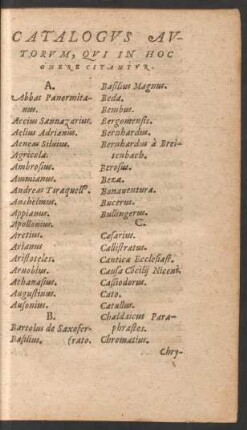 CATALOGVS AV-
TORVM, QVI IN HOC
OPERE CITANTVR.
A.
Abbas Panormita-
nus.
Accius Sannazarius.
Aelius Adrianus.
Aeneas Siluius.
Agricola.
Ambrosius.
Ammianus.
Andreas Tiraquell9.
Anshelmus.
Appianus.
Apollonius.
Aretius.
Arianus
Aristoteles.
Arnobius.
Athanasius.
Augustinus.
Ausonius.
B.
Bartolus de Saxofer-
Basilius. (rato.
Basilius Magnus.
Beda.
Bembus.
Bergomensis.
Bernhardus.
Bernhardus à Brei-
tenbach.
Berosus.
Beza.
Bonauentura.
Bucerus.
Bullingerus.
C.
Caesarius.
Callistratus.
Cantica Ecclesiast.
Causa Cōcilij Niceni.
Cassiodorus.
Cato.
Catullus.
Chaldaicus Para-
phrastes.
Chromatius.
Chry-